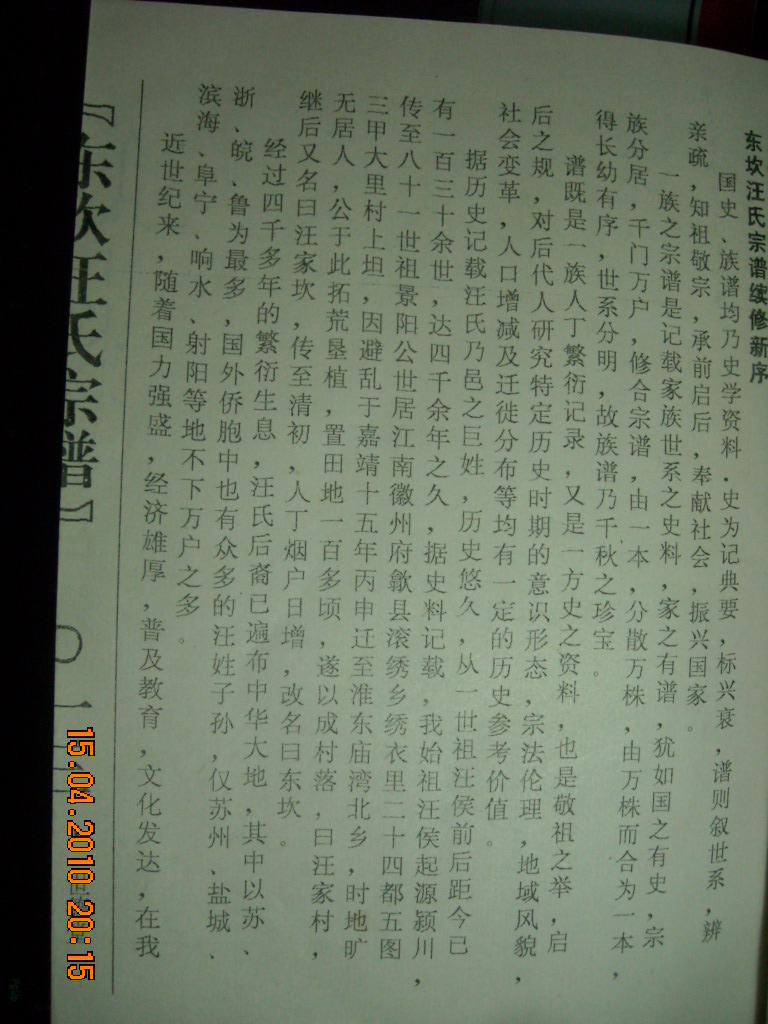 东坎汪氏宗谱续修新序
国史、族谱均乃史学资料．史为记典要，标兴衰，谱则叙世系，辨
亲疏，知祖敬宗，承前启后，奉献社会，振兴国家。
一族之宗谱是记载家族世系之史料，家之有谱，犹如国之有史，宗
族分居，千门万户，修合宗谱，由一本，分散万株，由万株而合为一本，
得长幼有序，世系分明，故族谱乃千秋之珍宝。
谱既是一族人丁繁衍记录，又是一方史之资料，也是敬祖之举，启
后之规，对后代人研究特定历史时期的意识形态，宗法伦理，地域风貌，
社会变革，人口增减及迁徙分布等均有一定的历史参考价值。
据历史记载汪氏乃邑之巨姓，历史悠久，从一世祖汪侯前后距今已
有一百三十余世，达四千余年之久，据史料记载，我始祖汪侯起源颍川，
传至八十一世祖景阳公世居江南徽州府歙县滚绣乡绣衣里二十四都五图
三甲大里村上坦，因避乱于嘉靖十五年丙申迁至淮东庙湾北乡，时地旷
无居人，公于此拓荒垦植，置田地一百多顷，遂以成村落，曰汪家村，
继后又名曰汪家坎，传至清初，人丁烟户日增，改名曰东坎。
经过四千多年的繁衍生息，汪氏后裔已遍布中华大地，其中以苏、
浙、皖、鲁为最多，国外侨胞中也有众多的汪姓子孙，仅苏州、盐城、
滨海、阜宁、响水、射阳等地不下万户之多。
近世纪来，随着国力强盛，经济雄厚，普及教育，文化发达，在我
『东坎汪氏宗谱』
15.04.2010 20:15